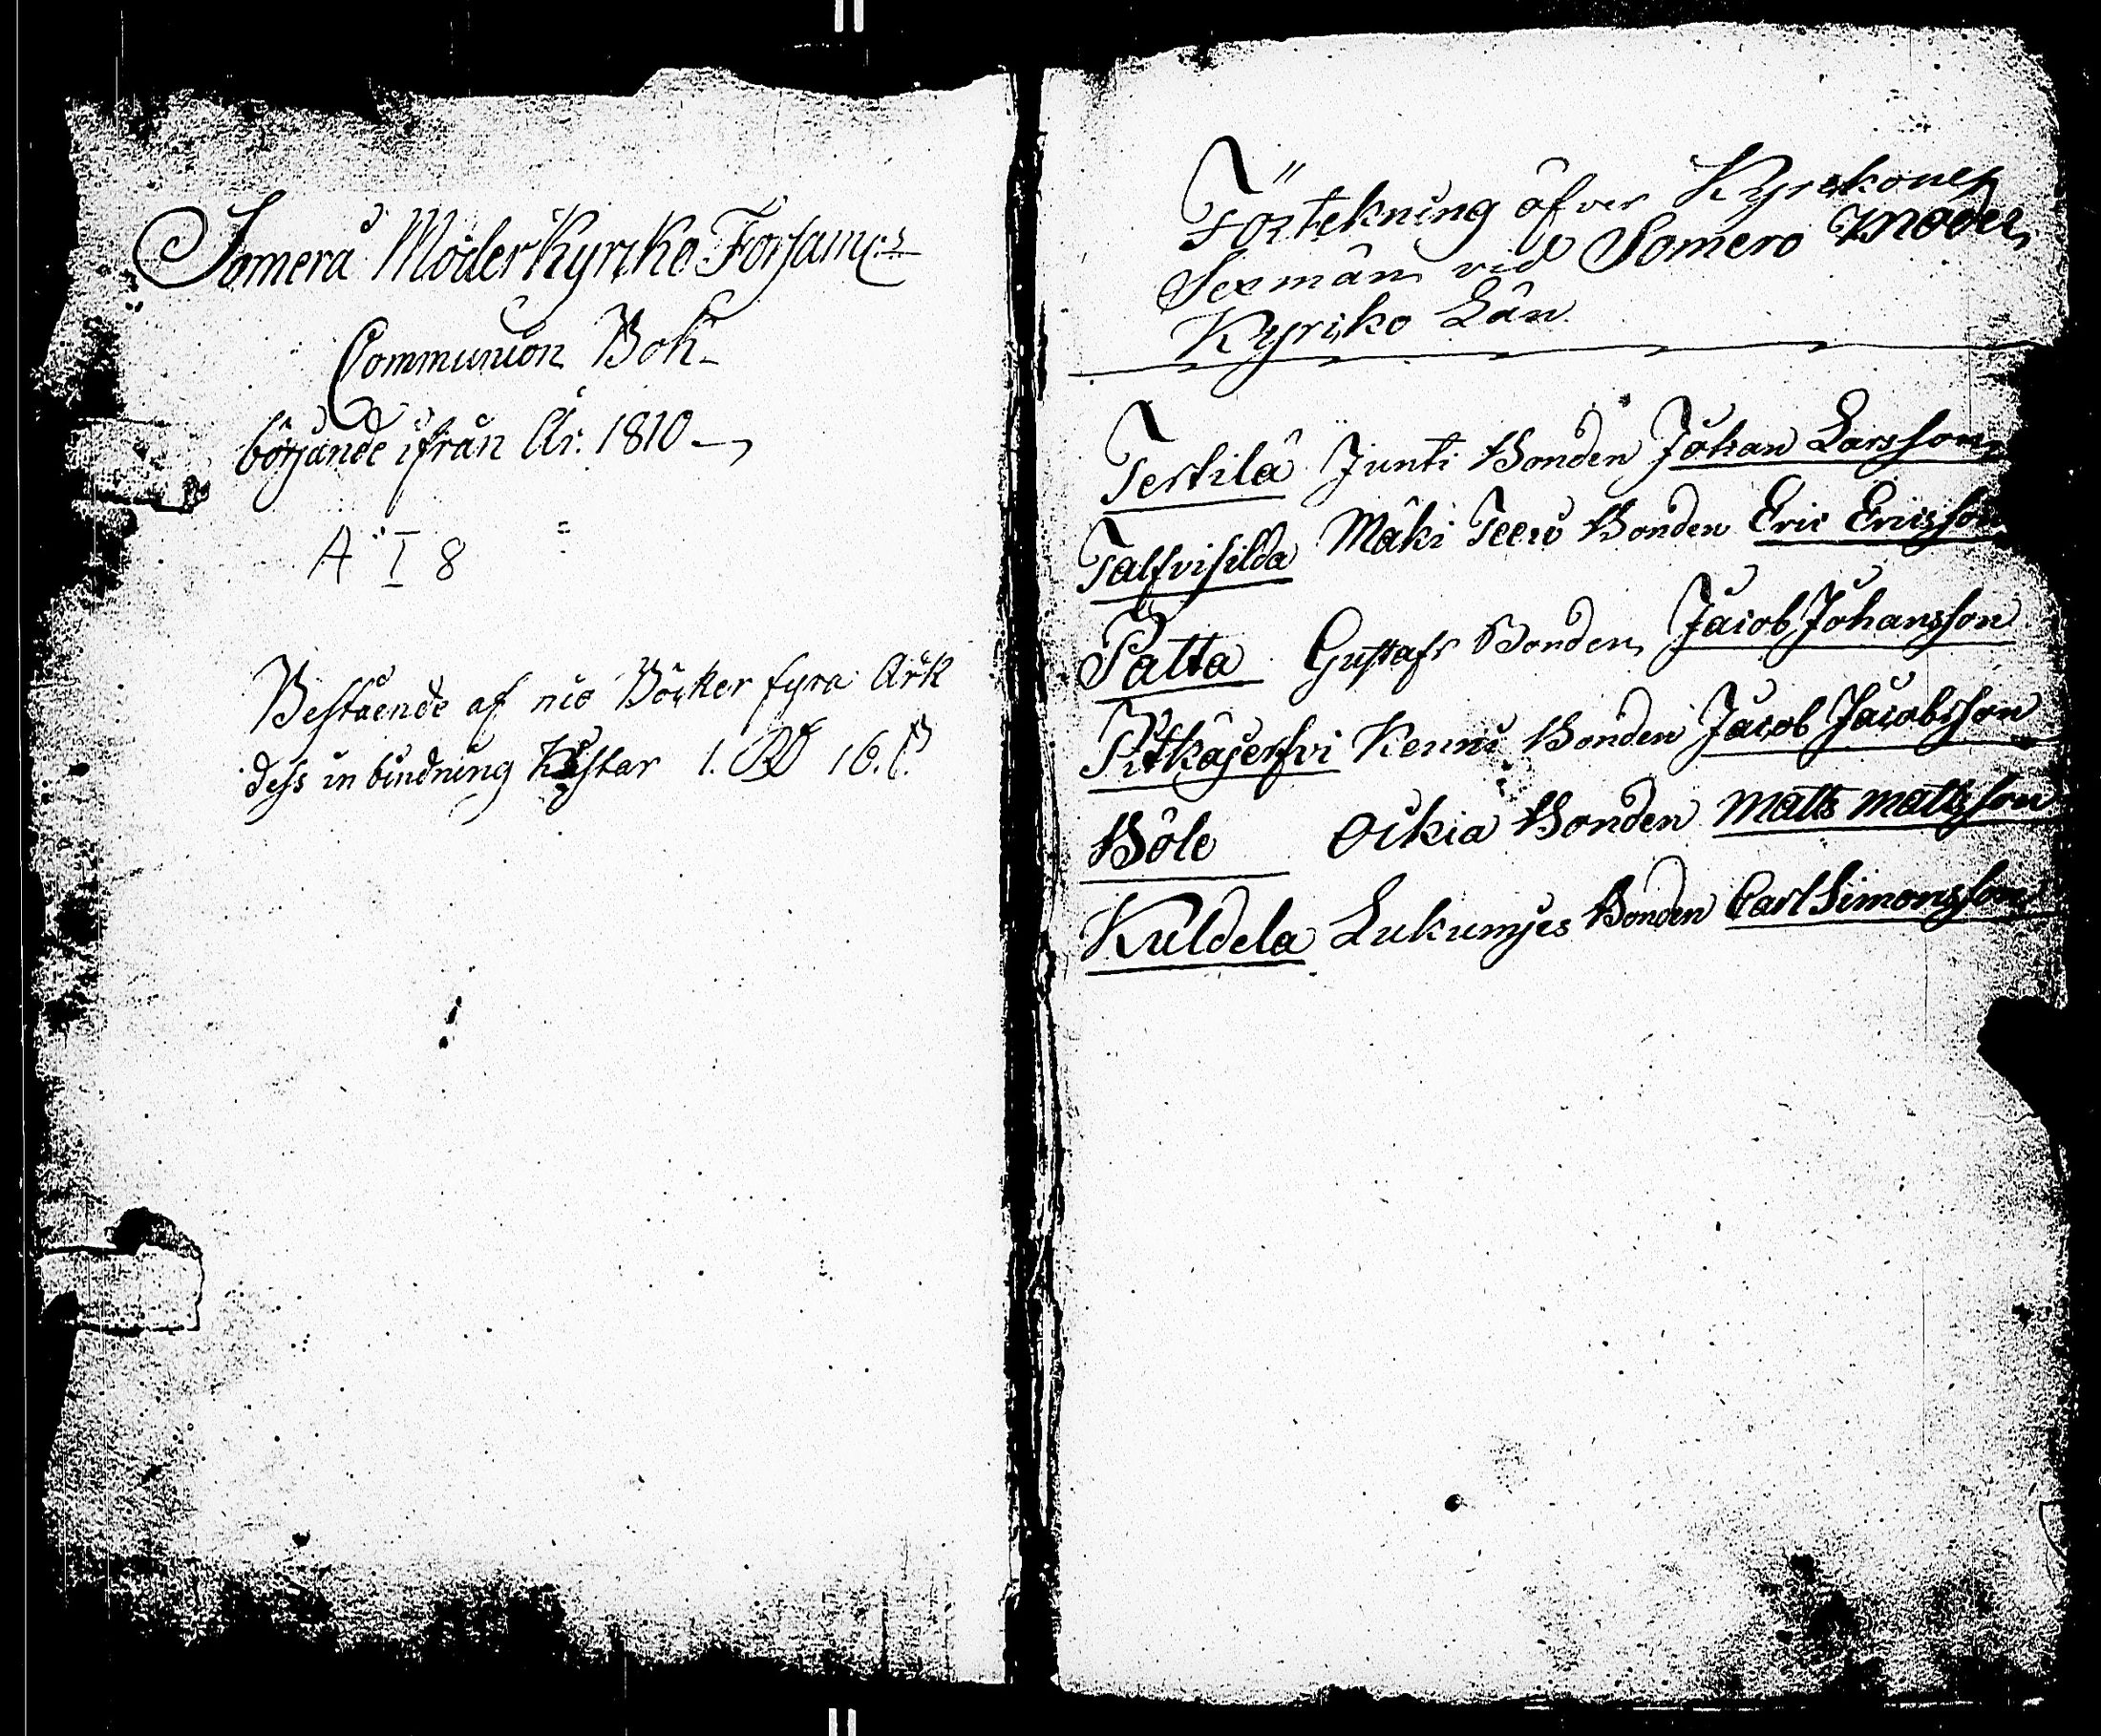 Somerå Moder Kyrcko Församl:s
Communion Bok
börjande ifrån År. 1810
A I 8
Bestående af nio Böcker fyra Ark
dess in bindning Kåstar 1. Rd 16. ß
Förtekning öfver Kyrckones
Sexmän vid Somero Moder
Kyrcko Län
Terttilä Junti Bonden Johan Larsson
Talfvisilda Mäki Teeri Bonden Eric Ericsson
Palta Gustafs Bonden Jacob Johansson
Pitkäjerfvi Kenni Bonden Jacob Jacobsson
Böle Oikia Bonden Matts Mattsson
Kuldela Lukumjes Bonden Carl Simonsson